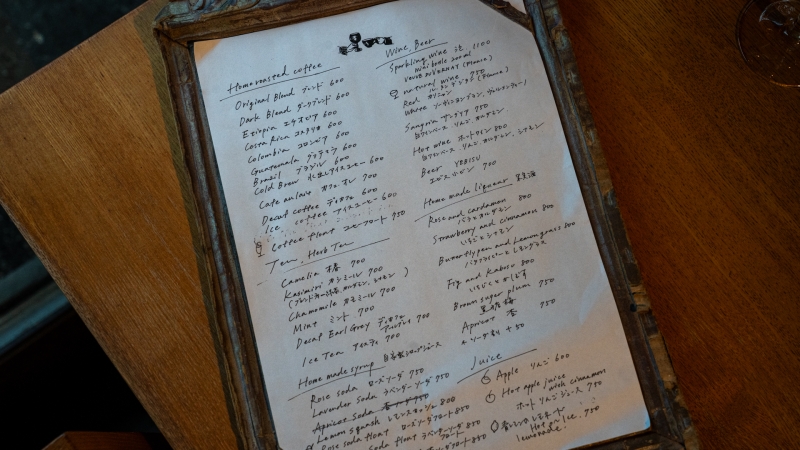 Home roasted coffee
Original Blend ブレンド 600
Dark Blend ダークブレンド 600
Etiopia エチオピア 600
Costa Rica コスタリカ 600
Colombia コロンビア 600
Guatemala グァテマラ 600
Brazil ブラジル 600
Cold Brew 水出しアイスコーヒー 600
Cafe au lait カフェオレ 700
Decaf coffee ディカフェ 600
Ice coffee アイスコーヒー 600
Coffee float コーヒーフロート 750
Tea, Herb Tea
Camelia 椿 700
Kasimiri カシミール 700
Chamomile カモミール 700
Mint ミント 700
Decaf Earl Grey ディカフェ アールグレイ 700
Ice Tea アイスティ 700
Home made syrup 自家製シロップジュース
Rose soda ローズソーダ 750
Lavender soda ラベンダーソーダ 750
Apricot soda
Lemon squash レモンスカッシュ 800
Rose soda float ローズソーダフロート 850
soda float ラベンダーソーダフロート 850
Wine, Beer
Sparkling wine 泡 1100
mini bottle 200ml
natural wine 750
Red
White
Sangria サングリア 750
白ワインベース りんご、オレンジ
Hot wine ホットワイン 800
白ワインベース りんご、オレンジ、シナモン
Beer YEBISU
エビスビール 700
Home made liqueur 果実酒
Rose and cardamon 800
バラとカルダモン
Strawberry and cinnamon 800
いちごとシナモン
Butterflypea and Lemongrass 800
バタフライピーとレモングラス
Fig and Kabosu 800
いちじくとかぼす
Brown sugar plum 750
黒糖梅
Apricot 杏 750
+ソーダ割り +50
Juice
Apple りんご 600
Hot apple juice
with cinnamon
ホットりんごジュース 750
Hot or Ice 750
lemonade